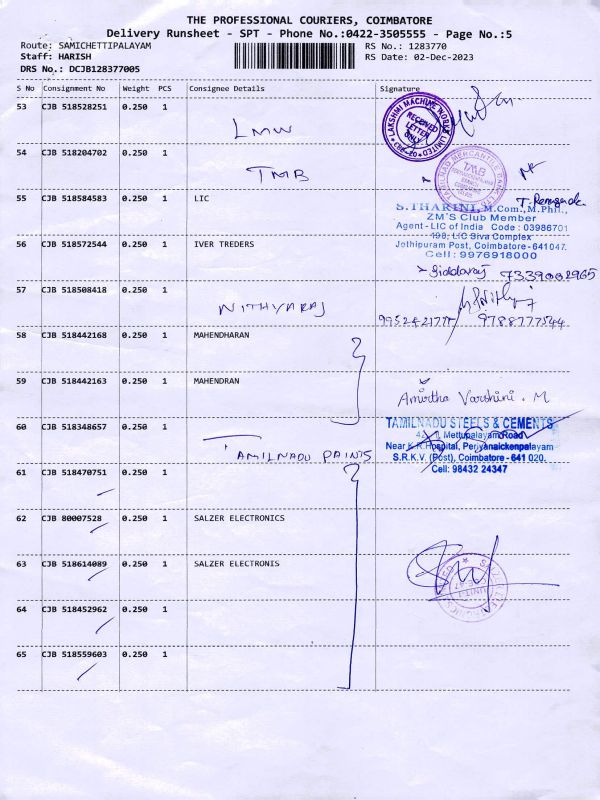 THE PROFESSIONAL COURIERS, COIMBATORE
Delivery Runsheet - SPT - Phone No.:0422-3505555 - Page No.:5
Route: SAMICHETTIPALAYAM
RS No.: 1283770
Staff: HARISH
RS Date: 02-Dec-2023
DRS No.: DCJB128377005
S No Consignment No Weight PCS Consignee Details Signature
53 CJB 518528251 0.250 1 LMW
LAKSHMI MACHINE WORKS LIMITED
RECEIVED LETTER ONLY
54 CJB 518204702 0.250 1 TMB
TAMILNAD MERCANTILE BANK
TMB
55 CJB 518584583 0.250 1 LIC
S.THARINI, M.Com., M.Phil.,
ZM'S Club Member
Agent - LIC of India Code : 03986701
198, LIC Siva Complex
Jothipuram Post, Coimbatore - 641047.
Cell : 9976918000
56 CJB 518572544 0.250 1 IVER TREDERS
Siddaraj 7339002965
57 CJB 518508418 0.250 1 NITHYARAJ
9788777544
58 CJB 518442168 0.250 1 MAHENDHARAN
59 CJB 518442163 0.250 1 MAHENDRAN
Amirtha Varshini. M
60 CJB 518348657 0.250 1 TAMILNADU PAINTS
TAMILNADU STEELS & CEMENTS
Mettupalayam Road
Near K.R.Hospital, Periyanaickenpalayam
S.R.K.V. (Post), Coimbatore - 641 020.
Cell: 98432 24347
61 CJB 518470751 0.250 1
62 CJB 80007528 0.250 1 SALZER ELECTRONICS
63 CJB 518614089 0.250 1 SALZER ELECTRONIS
64 CJB 518452962 0.250 1
65 CJB 518559603 0.250 1